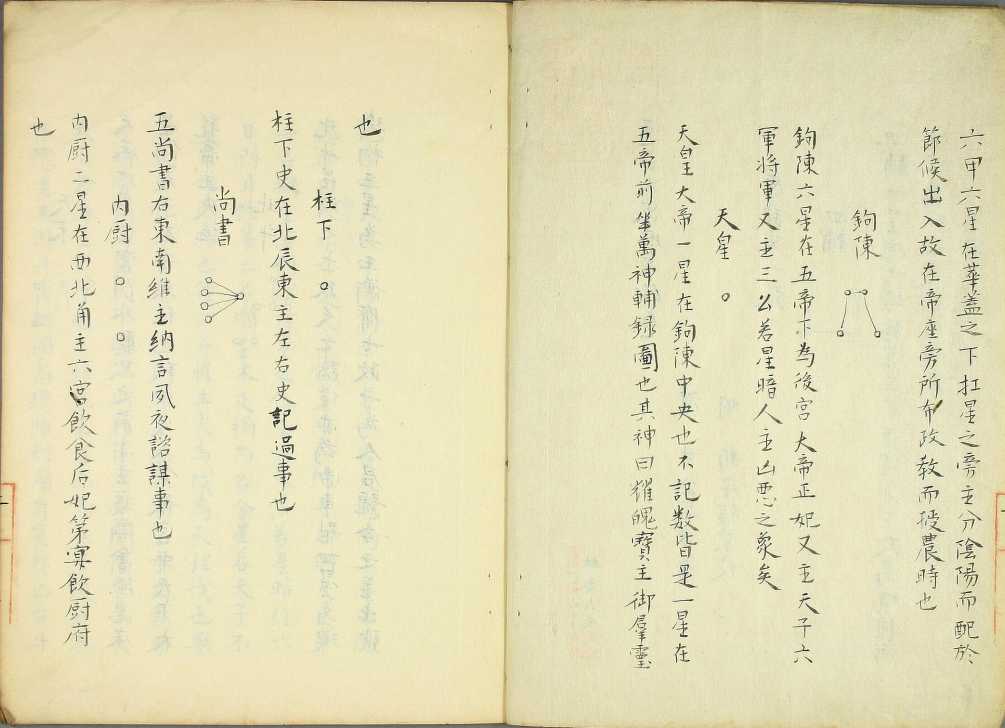 六甲六星在華盖之下扛星之旁主分陰陽而配於
節候出入故在帝座旁所布政教而授農時也
鉤陳
鉤陳六星在五帝下為後宮大帝正妃又主天子六
軍将軍又主三公若星暗人主凶悪之象矣
天皇
天皇大帝一星在鉤陳中央也不記数皆是一星在
五帝前坐萬神輔録圖也其神曰耀魄寶主御羣靈
也
柱下
柱下史在北辰東主左右史記過事也
尚書
五尚書右東南維主納言夙夜諮謀事也
内厨
内厨二星在西北角主六宮飲食后妃第宴飲厨府
也